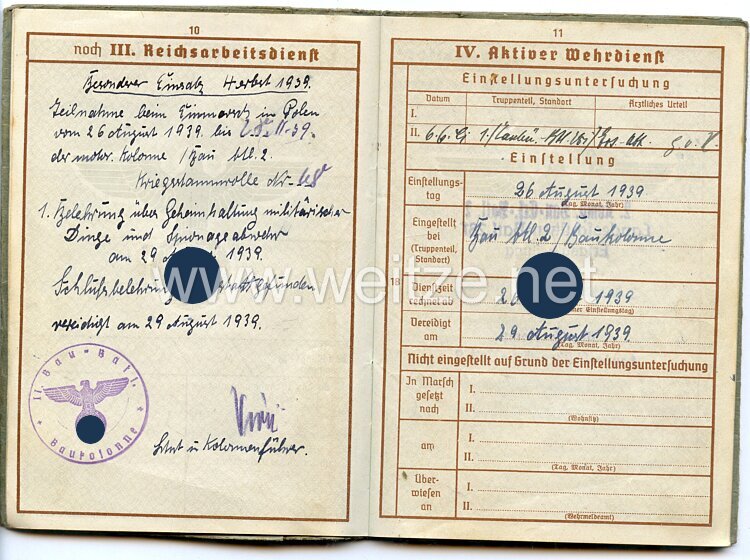 10
noch III. Reichsarbeitsdienst
Besonderer Einsatz Herbst 1939.
Teilnahme beim Einmarsch in Polen
vom 26 August 1939. bis
der motor. Kolonne / Bau Btl. 2.
Kriegsstammrolle Nr.
1. Belehrung über Geheimhaltung militärischer
Dinge und Spionageabwehr
am 29 August 1939.
Schlußbelehrung stattgefunden
vereidigt am 29 August 1939.
II. Bau-Batl.
Baukolonne
Ltnt u. Kolonnenführer.
11
IV. Aktiver Wehrdienst
Einstellungsuntersuchung
Datum Truppenteil, Standort Ärztliches Urteil
I.
II.
Einstellung
Einstellungstag 26 August 1939
(Tag, Monat, Jahr)
Eingestellt bei Bau Btl. 2 / Baukolonne
(Truppenteil, Standort)
18
Dienstzeit rechnet ab 26 1939
Vereidigt am 29 August 1939.
(Tag, Monat, Jahr)
Nicht eingestellt auf Grund der Einstellungsuntersuchung
In Marsch gesetzt nach I.
II.
(Wohnsitz)
am I.
II.
(Tag, Monat, Jahr)
Überwiesen an I.
II.
(Wehrmeldeamt)
www.weitze.net